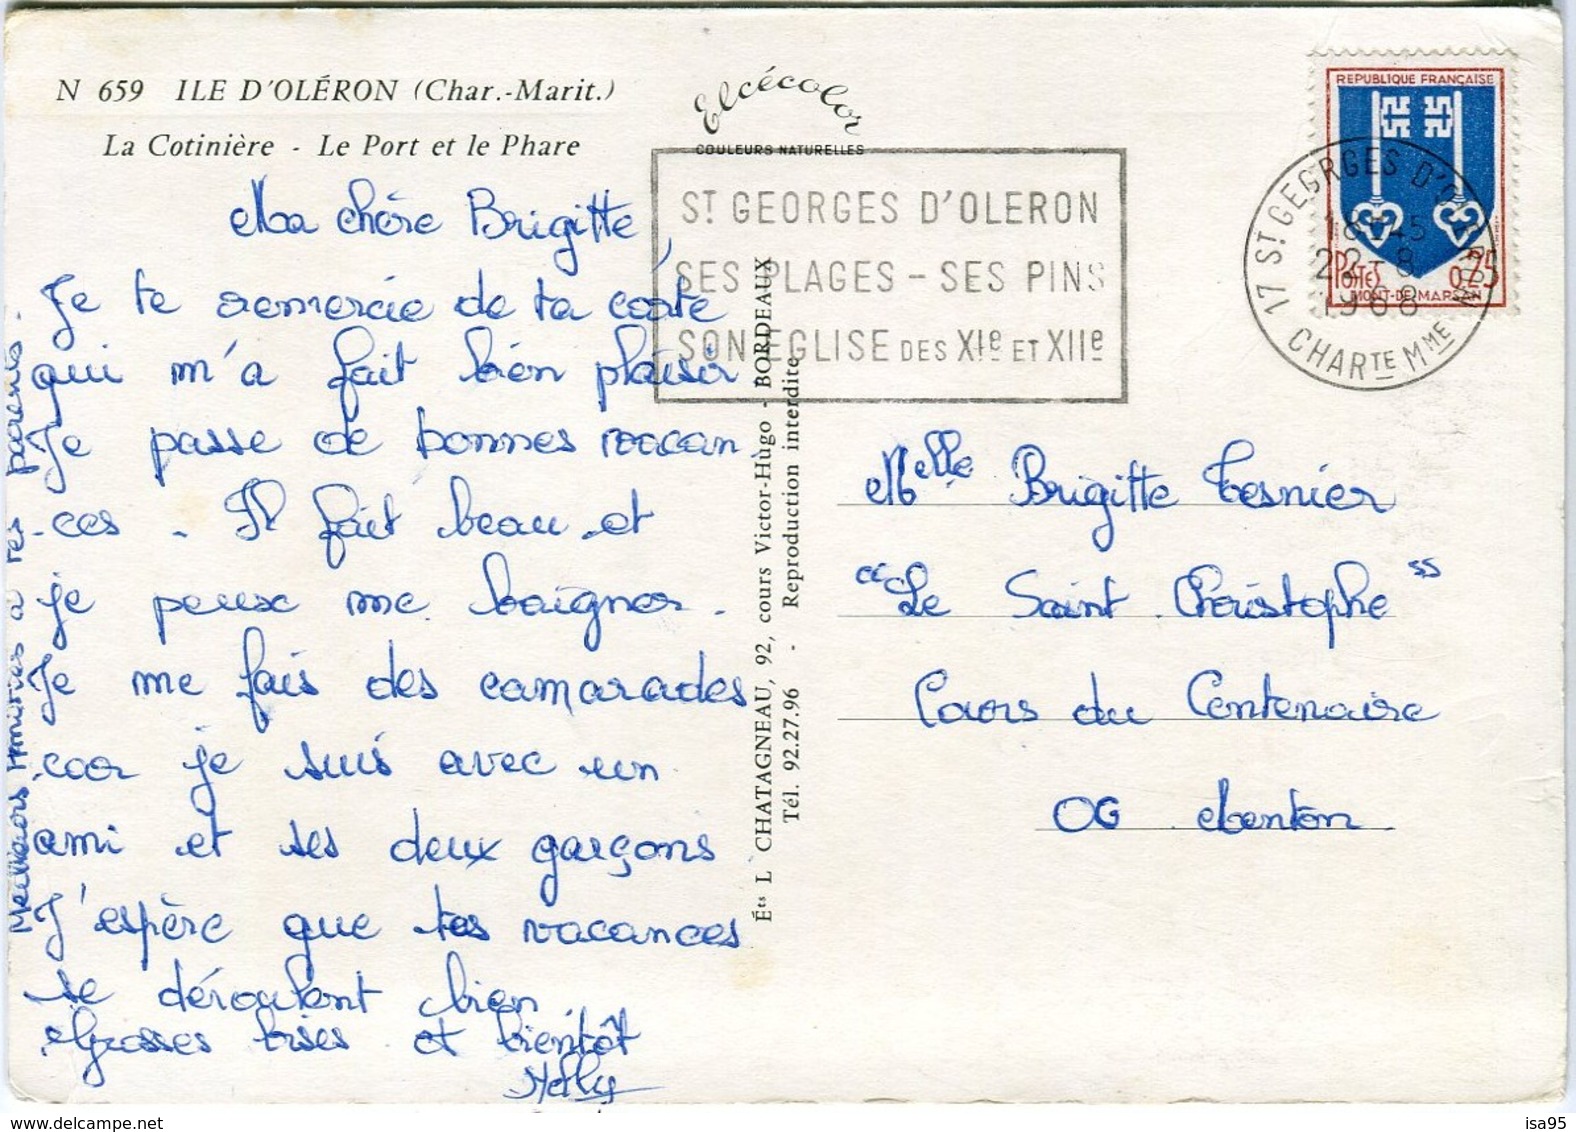 N 659 ILE D'OLÉRON (Char.-Marit.)
La Cotinière - Le Port et le Phare
Elcécolor
COULEURS NATURELLES
ST GEORGES D'OLERON
SES PLAGES - SES PINS
SON EGLISE DES XIe ET XIIe
REPUBLIQUE FRANÇAISE
POSTES 0,25
MONT-DE-MARSAN
17 ST GEORGES D'OLERON
18H45
22-8
1968
CHARTE MME
Ma chère Brigitte,
Je te remercie de ta carte
qui m'a fait bien plaisir
Je passe de bonnes vacan
-ces. Il fait beau et
je peux me baigner.
Je me fais des camarades
car je suis avec un
ami et ses deux garçons
J'espère que tes vacances
se déroulent bien.
Grosses bises et bientôt
Nelly
Meilleurs Amitiés à tes parents.
Éts L CHATAGNEAU, 92, cours Victor-Hugo - BORDEAUX
Tél. 92.27.96 - Reproduction interdite
Melle Brigitte Tesnier
"Le Saint Christophe"
Cours du Centenaire
06 Menton
isa95